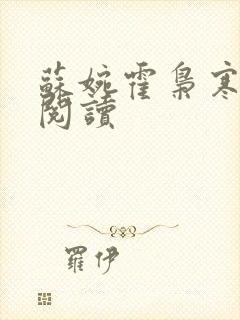 蘇婉霍梟寒
閱讀
羅伊